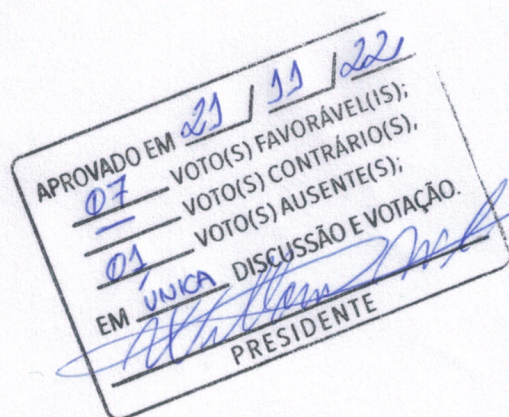 APROVADO EM 21 / 11 / 22
07 VOTO(S) FAVORÁVEL(IS);
— VOTO(S) CONTRÁRIO(S),
01 VOTO(S) AUSENTE(S);
EM ÚNICA DISCUSSÃO E VOTAÇÃO.
PRESIDENTE